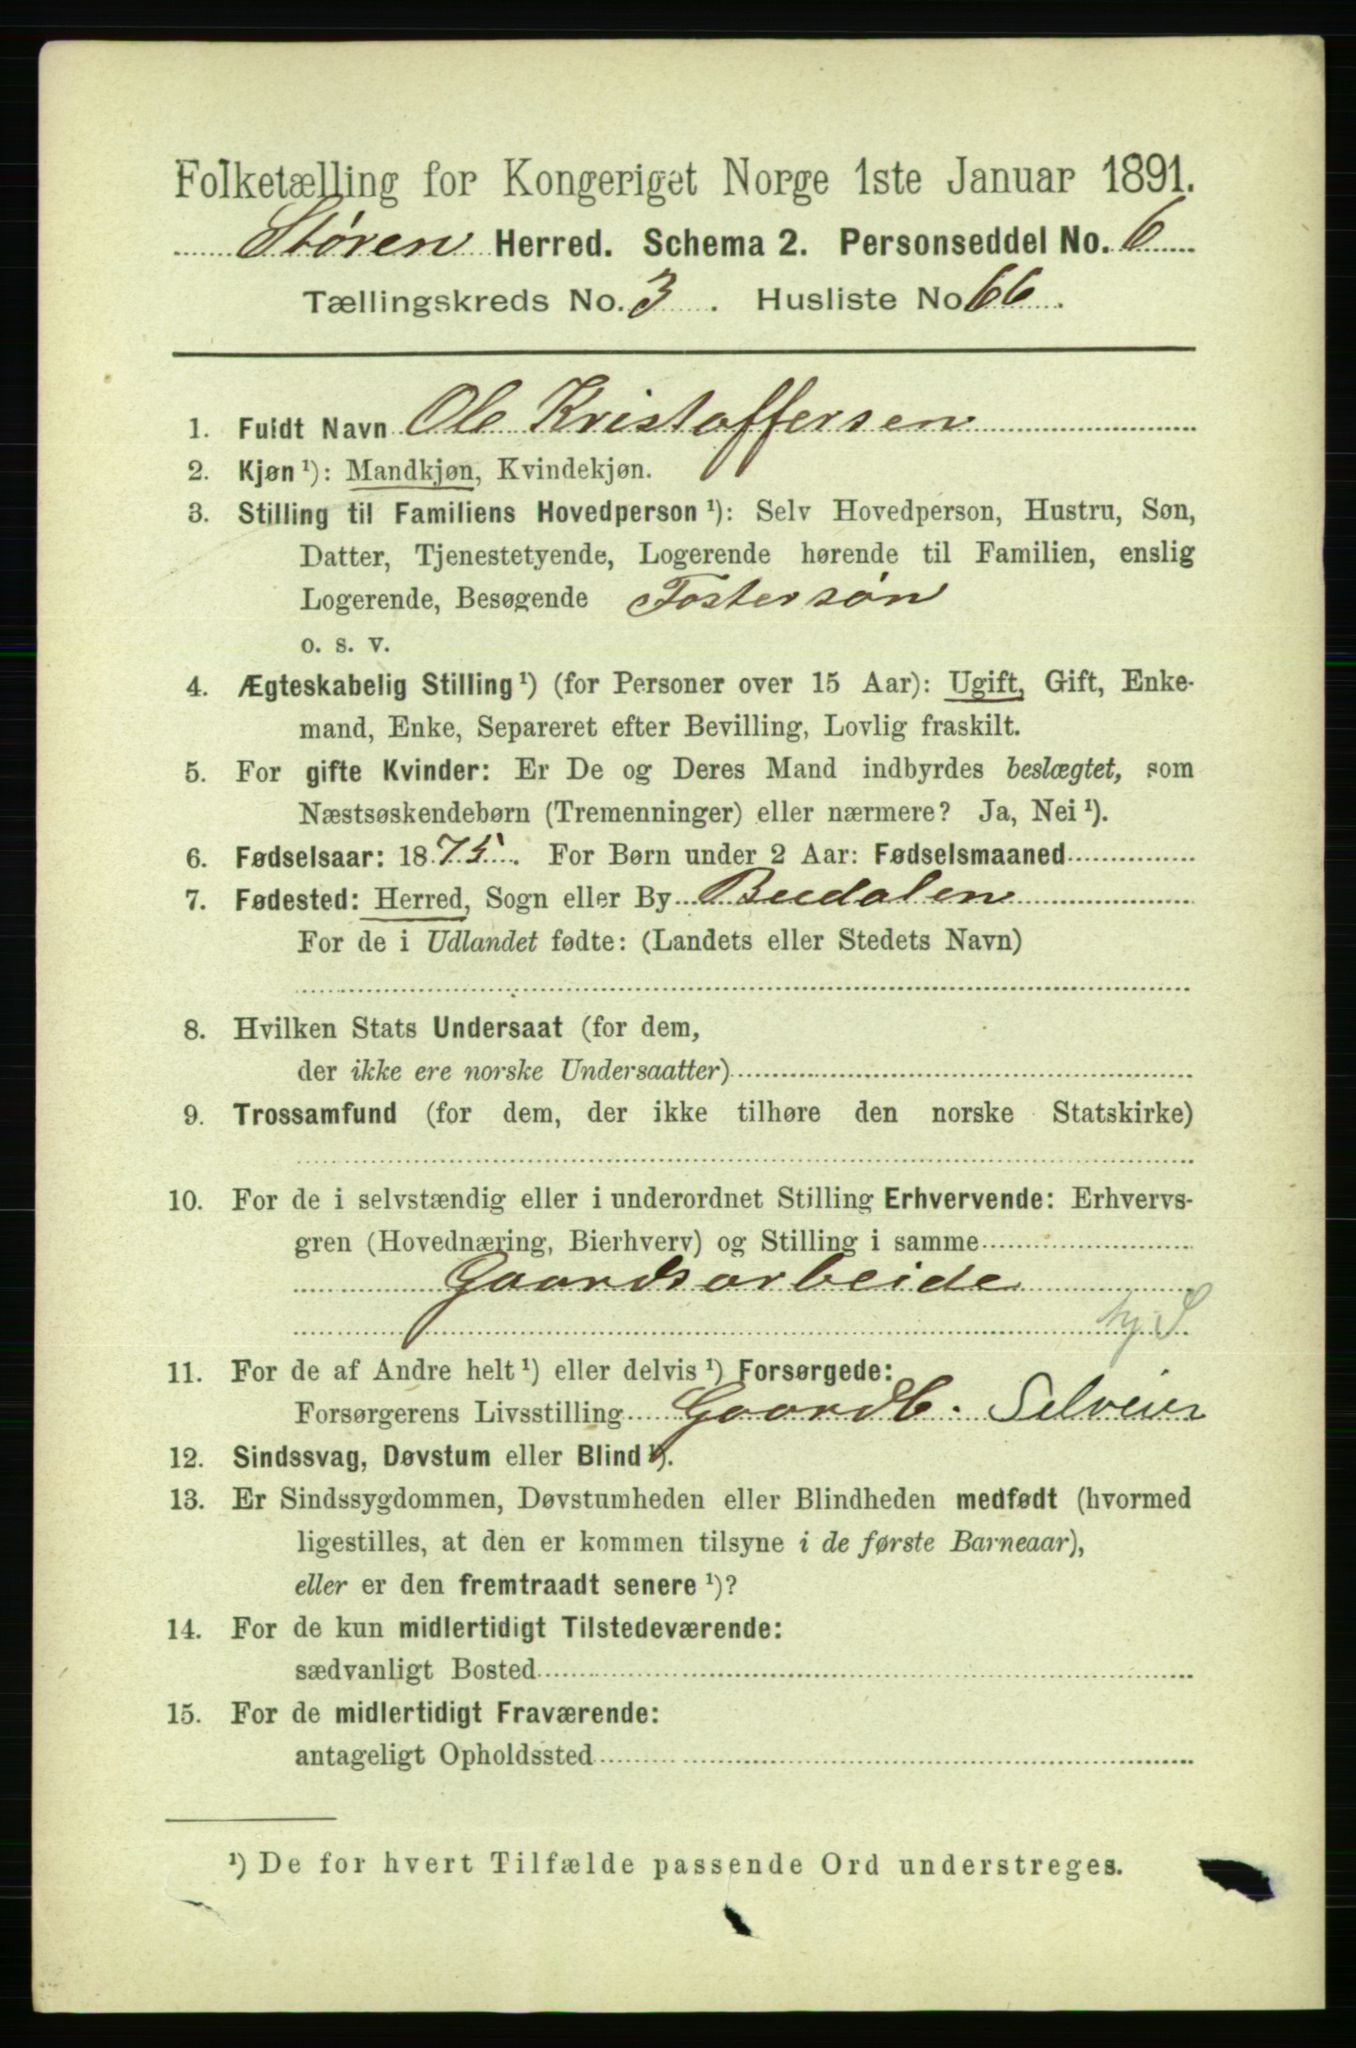 Folketælling for Kongeriget Norge 1ste Januar 1891.
Støren Herred. Schema 2. Personseddel No. 6
Tællingskreds No. 3. Husliste No 66.
1. Fuldt Navn Ole Kristoffersen
2. Kjøn ¹): Mandkjøn, Kvindekjøn.
3. Stilling til Familiens Hovedperson ¹): Selv Hovedperson, Hustru, Søn,
Datter, Tjenestetyende, Logerende hørende til Familien, enslig
Logerende, Besøgende Fostersøn
o. s. v.
4. Ægteskabelig Stilling ¹) (for Personer over 15 Aar): Ugift, Gift, Enke-
mand, Enke, Separeret efter Bevilling, Lovlig fraskilt.
5. For gifte Kvinder: Er De og Deres Mand indbyrdes beslægtet, som
Næstsøskendebørn (Tremenninger) eller nærmere? Ja, Nei ¹).
6. Fødselsaar: 1875. For Børn under 2 Aar: Fødselsmaaned
7. Fødested: Herred, Sogn eller By Budalen
For de i Udlandet fødte: (Landets eller Stedets Navn)
8. Hvilken Stats Undersaat (for dem,
der ikke ere norske Undersaatter)
9. Trossamfund (for dem, der ikke tilhøre den norske Statskirke)
10. For de i selvstændig eller i underordnet Stilling Erhvervende: Erhvervs-
gren (Hovednæring, Bierhverv) og Stilling i samme
Gaardsarbeide
11. For de af Andre helt ¹) eller delvis ¹) Forsørgede:
Forsørgerens Livsstilling Gaardb. Selveier
12. Sindssvag, Døvstum eller Blind ¹).
13. Er Sindssygdommen, Døvstumheden eller Blindheden medfødt (hvormed
ligestilles, at den er kommen tilsyne i de første Barneaar),
eller er den fremtraadt senere ¹)?
14. For de kun midlertidigt Tilstedeværende:
sædvanligt Bosted
15. For de midlertidigt Fraværende:
antageligt Opholdssted
¹) De for hvert Tilfælde passende Ord understreges.